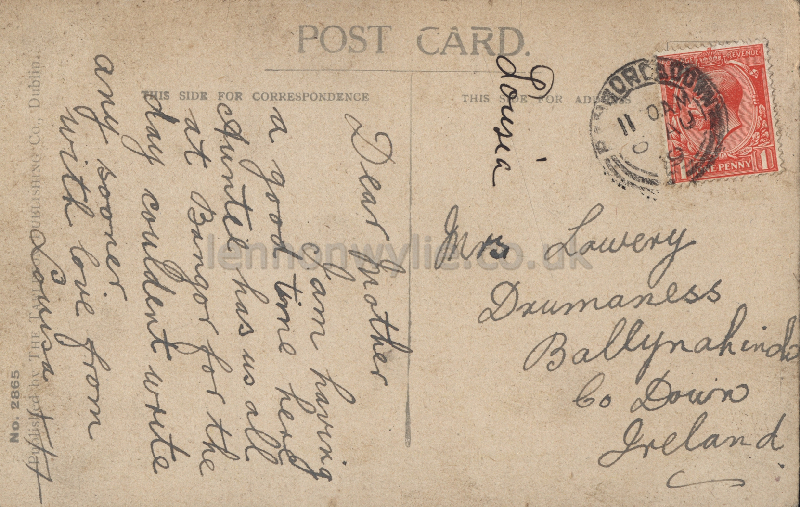 POST CARD.
THIS SIDE FOR CORRESPONDENCE
THIS SIDE FOR ADDRESS
Dear Mother
I am having
a good time here
Auntie has us all
at Bangor for the
day couldent write
any sooner
with love from
Louisa
Lousia
Mrs Lowery
Drumaness
Ballynahinch
Co Down
Ireland
PORTADOWN
11
REVENUE
ONE PENNY
1
No. 2865
Published by THE PUBLISHING Co., Dublin.
lennonwylie.co.uk